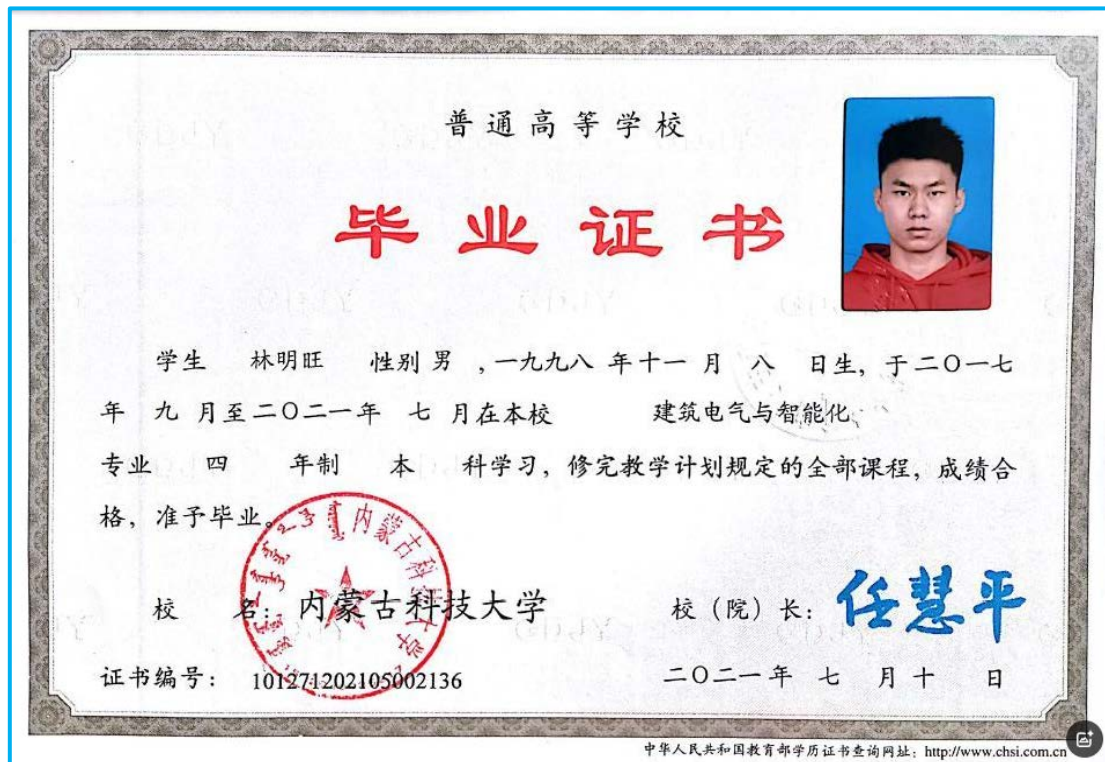 普通高等学校
毕业证书
学生 林明旺 性别 男 ,一九九八 年十一 月 八 日生, 于二〇一七
年 九 月至二〇二一年 七 月在本校 建筑电气与智能化
专业 四 年制 本 科学习, 修完教学计划规定的全部课程, 成绩合
格, 准予毕业。
内蒙古科技大学
校 名: 内蒙古科技大学 校(院)长: 任慧平
证书编号: 101271202105002136 二〇二一年 七 月 十 日
中华人民共和国教育部学历证书查询网址: http://www.chsi.com.cn